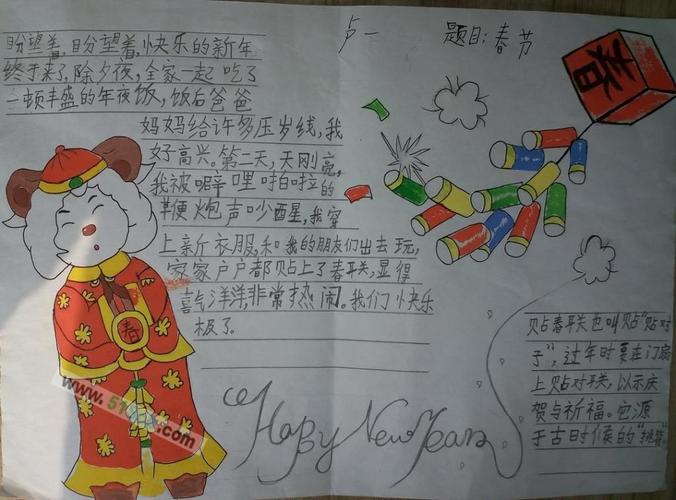 卢一 题目:春节
盼望着,盼望着,快乐的新年
终于来了,除夕夜,全家一起吃了
一顿丰盛的年夜饭,饭后爸爸
妈妈给许多压岁线,我
好高兴。第二天,天刚亮,
我被噼哩啪啦的
鞭炮声吵醒,我穿
上新衣服,和我的朋友们出去玩,
家家户户都贴上了春联,显得
喜气洋洋,非常热闹。我们快乐
极了。
春
春
贴春联也叫贴"贴对
子",过年时要在门扇
上贴对联,以示庆
贺与祈福。它源
于古时候的"桃符"
Happy New Year
www.51
.com